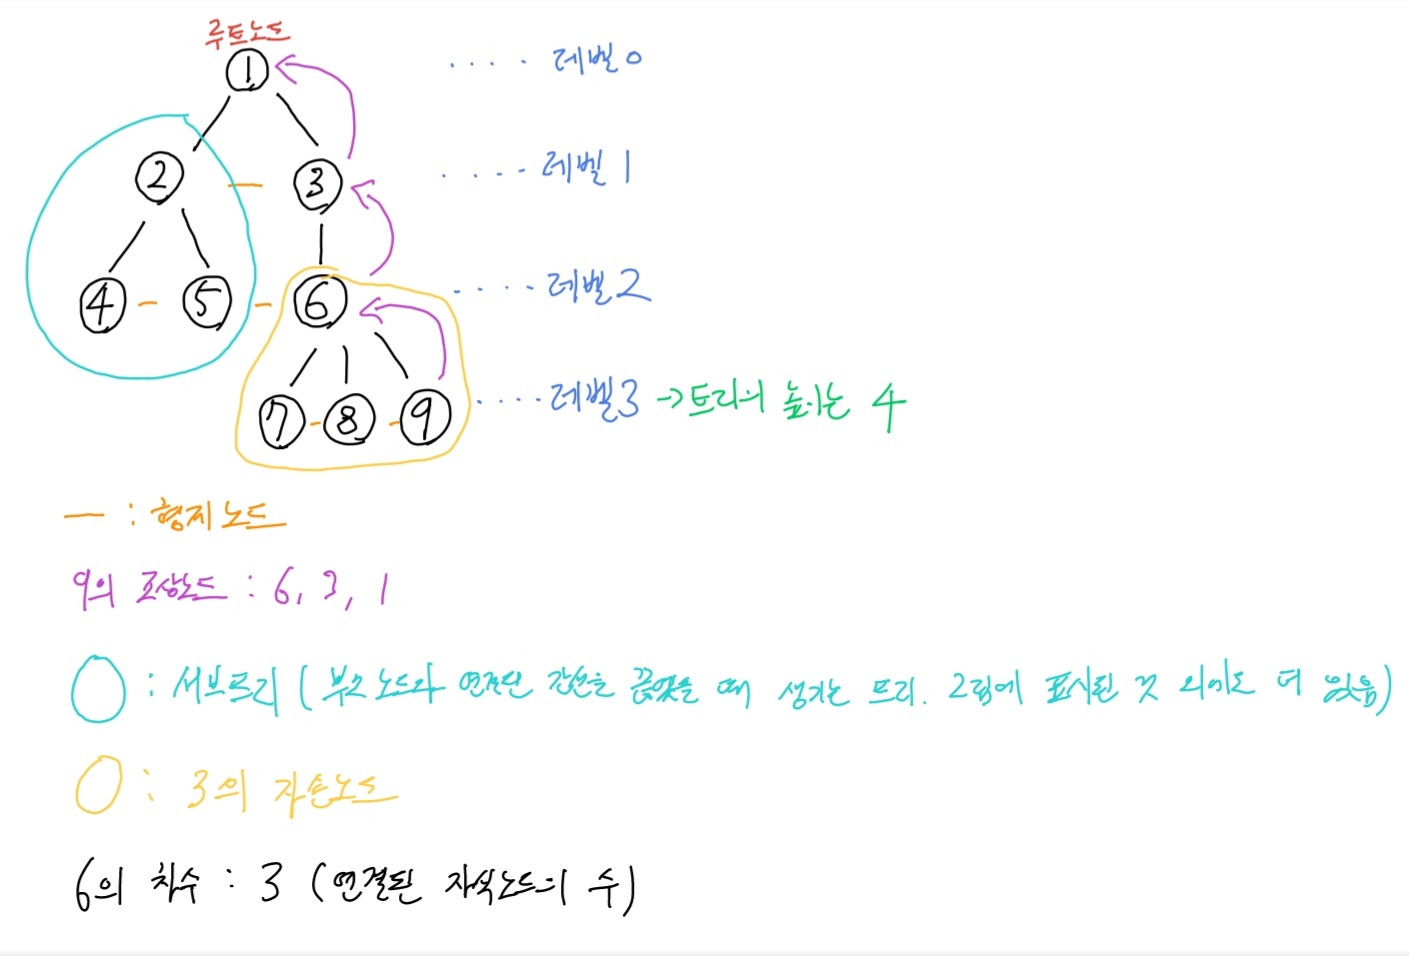 루트노드
1 .... 레벨 0
2 - 3 .... 레벨 1
4 - 5 - 6 .... 레벨 2
7 - 8 - 9 .... 레벨 3 → 트리의 높이는 4
— : 형제노드
9의 조상노드 : 6, 3, 1
○ : 서브트리 ( 부모노드와 연결된 간선을 끊었을 때 생기는 트리. 그림에 표시된 것 외에도 더 있음)
○ : 3의 자손노드
6의 차수 : 3 (연결된 자식노드의 수)